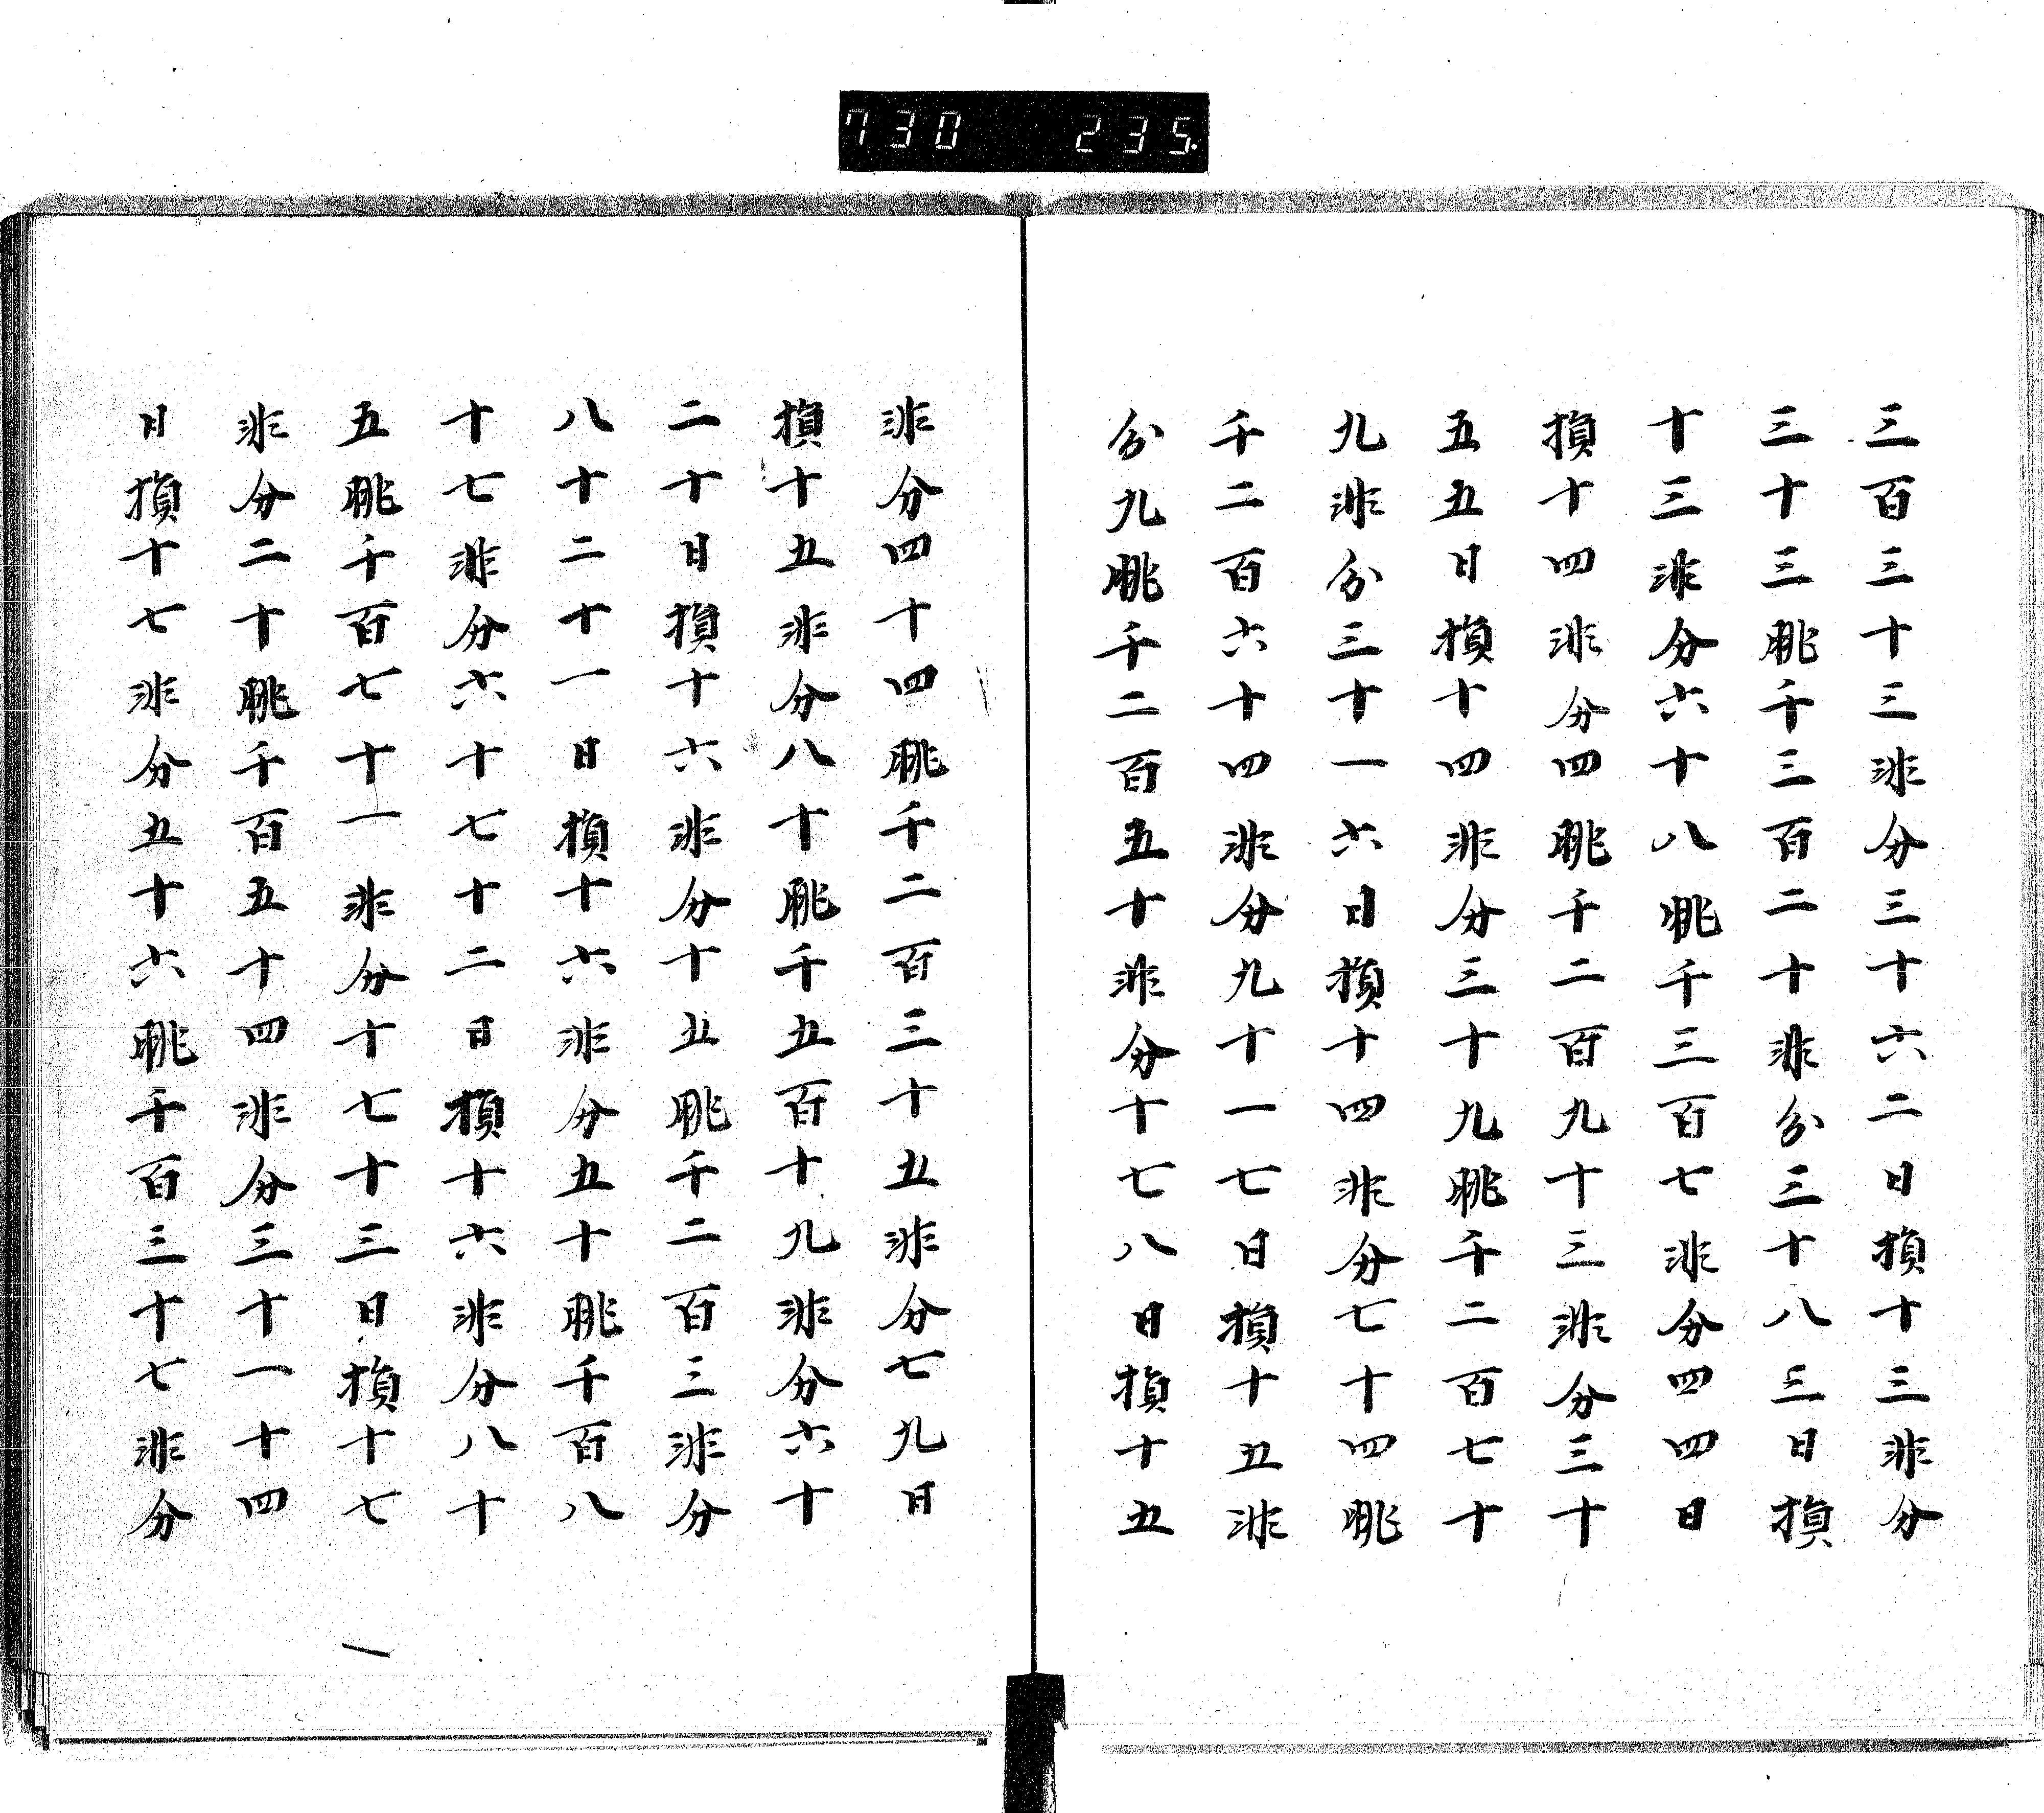 730 235.
三百三十三非分三十六二日損十三非分
三十三朓千三百二十非分三十八三日損
十三非分六十八朓千三百七非分四四日
損十四非分四朓千二百九十三非分三十
五五日損十四非分三十九朓千二百七十
九非分三十一六日損十四非分七十四朓
千二百六十四非分九十一七日損十五非
分九朓千二百五十非分十七八日損十五
非分四十四朓千二百三十五非分七九日
損十五非分八十朓千五百十九非分六十
二十日損十六非分十五朓千二百三非分
八十二十一日損十六非分五十朓千百八
十七非分六十七十二日損十六非分八十
五朓千百七十一非分十七十三日損十七
非分二十朓千百五十四非分三十一十四
日損十七非分五十六朓千百三十七非分